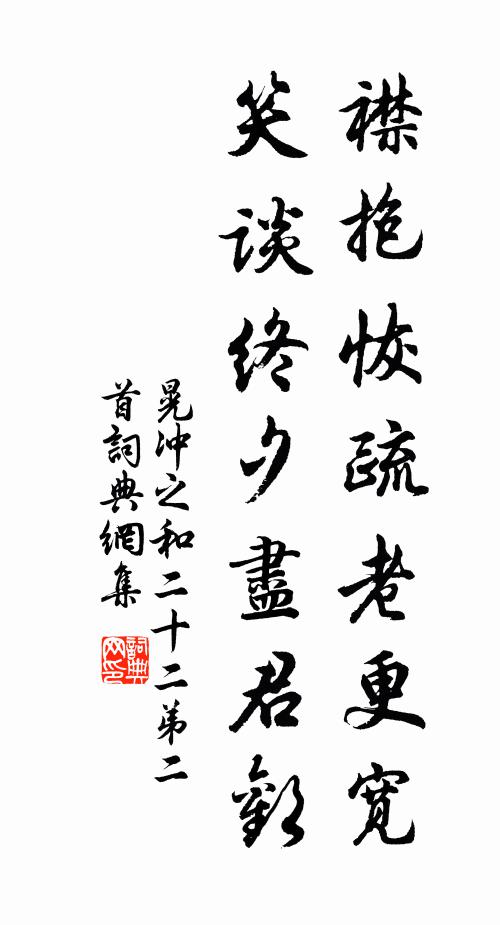 襟抱恢疏老更寬
笑談終夕盡君歡
晁冲之和二十二弟二
首詞典網集
詞典
网印